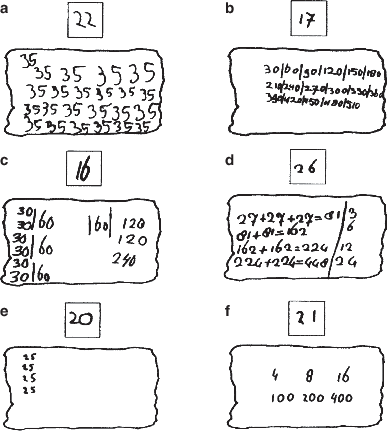 a
22
35
35 35 35 35
35 35 35 35 35 35
35 35 35 35 35 35
35 35 35 35 35 35 35
b
17
30/60/90/120/150/180
210/240/270/300/330/360
390/420/450/480/510
c
16
30
30/60
30
30/60
30
30/60
60/120
120
240
d
26
27+27+27=81/3
81+81=162 /6
162+162=224 /12
224+224=448/24
e
20
25
25
25
25
f
21
4 8 16
100 200 400